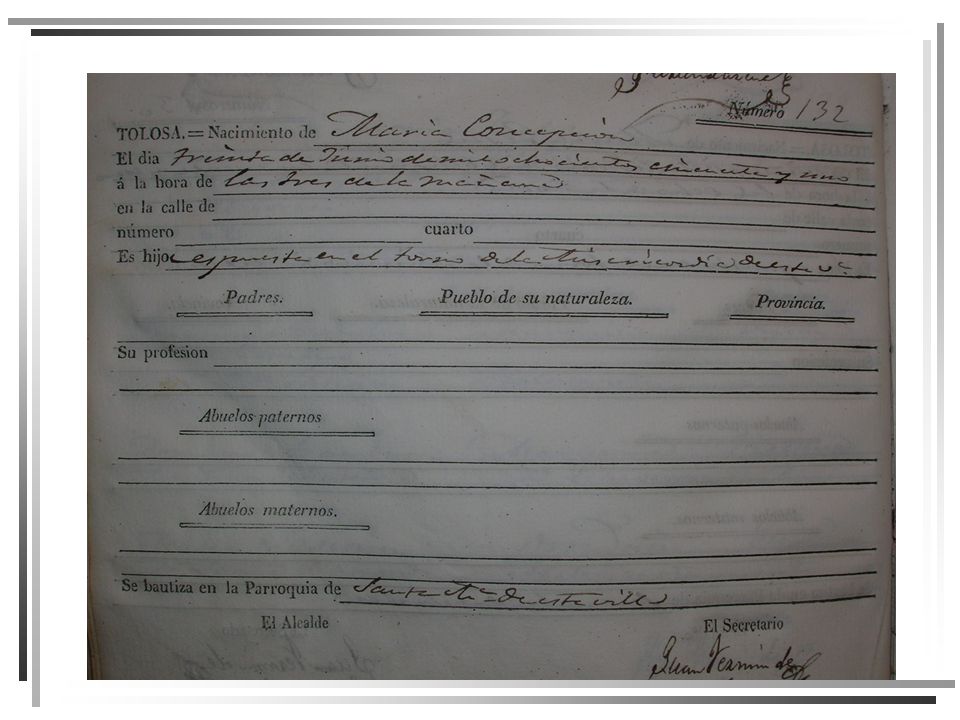 Número 132
TOLOSA.=Nacimiento de Maria Concepcion
El dia treinta de Junio de mil ochocientos cincuenta y uno
á la hora de las tres de la mañana
en la calle de
número cuarto
Es hijo espuesta en el torno de la Misericordia de esta v.ª
Padres. Pueblo de su naturaleza. Provincia.
Su profesion
Abuelos paternos
Abuelos maternos.
Se bautiza en la Parroquia de Santa M.ª de esta villa
El Alcalde El Secretario
Juan Fermin de